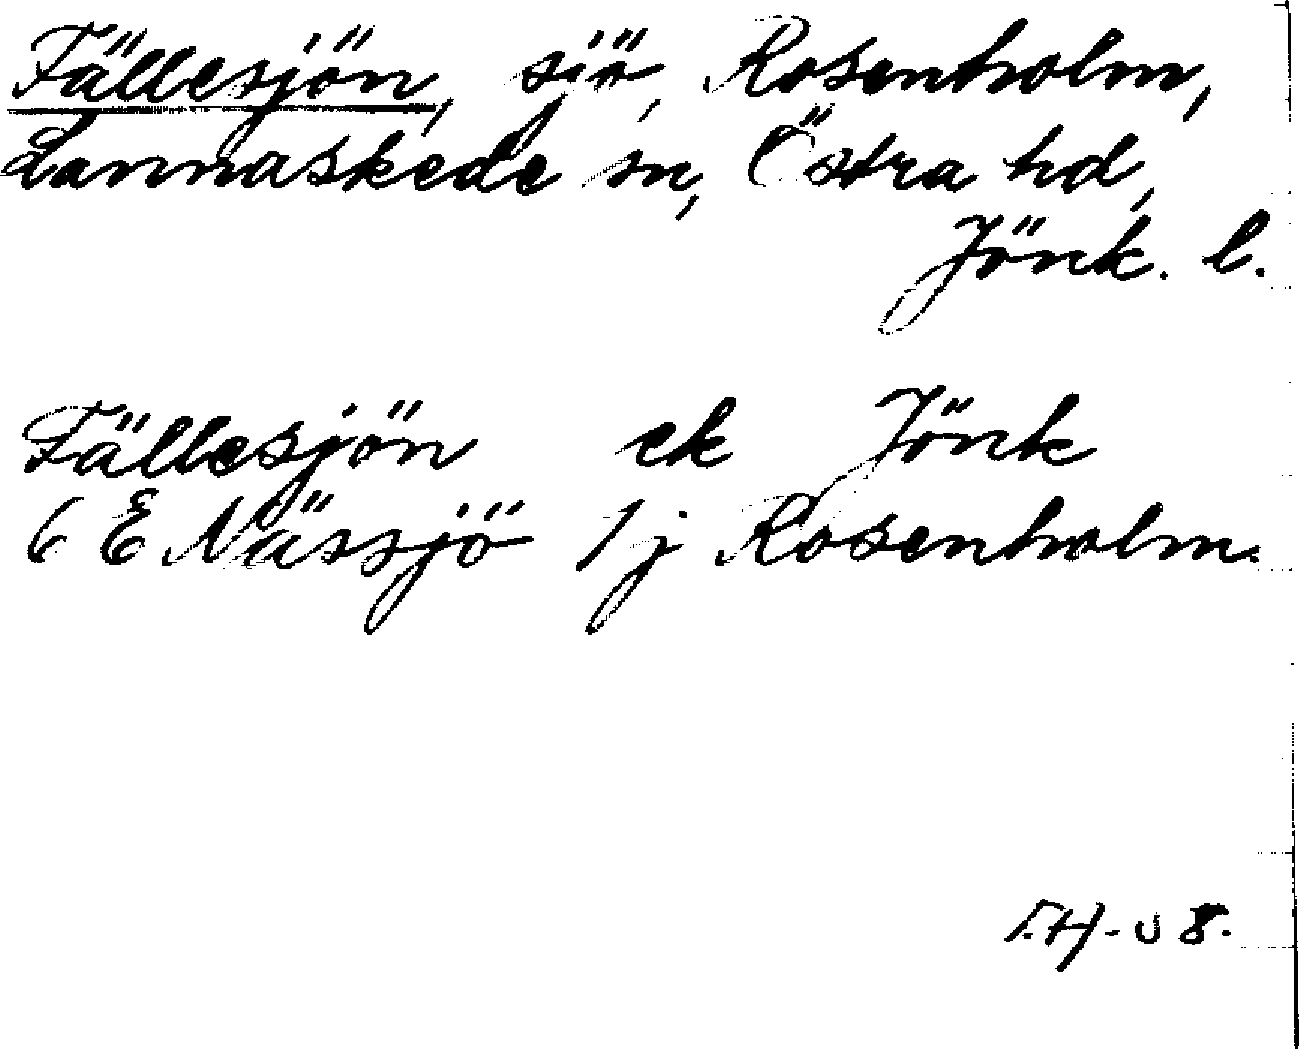 Fällesjön, sjö, Rosenholm,
Lannaskede sn, Östra hd,
Jönk. l.
Fällesjön ek Jönk
6 E Nässjö 1j Rosenholm.